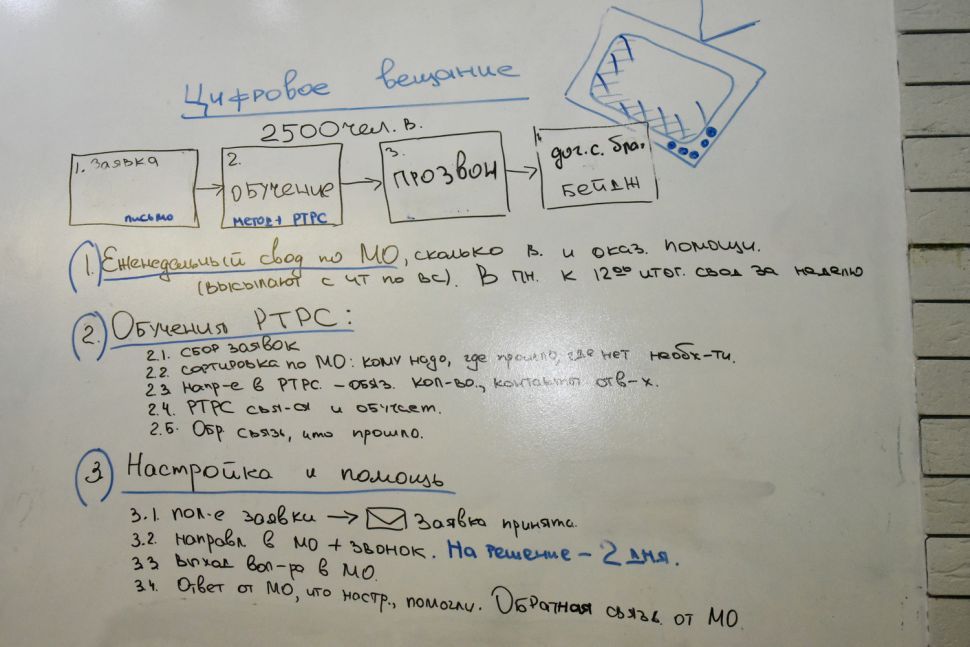 Цифровое вещание
2500 чел. в.
1. Заявка
письмо
2.
ОБУЧЕНИЕ
метод + РТРС
3.
ПРОЗВОН
дог. с. бра.
БЕЙДЖ
1. Еженедельный свод по МО, сколько в. и оказ. помощи.
(высылают с чт по вс). В пн. к 12⁰⁰ итог. свод за неделю
2. Обучения РТРС:
2.1. сбор заявок
2.2. сортировка по МО: кому надо, где прошло, где нет необх-ти.
2.3. напр-е в РТРС. – обяз. кол-во., контакты отв-х.
2.4. РТРС свя-ся и обучает.
2.5. Обр связь, что прошло.
3 Настройка и помощь
3.1. пол-е заявки → Заявка принята.
3.2. направл. в МО + звонок. На решение – 2 дня.
3.3 выход вол-ра в МО.
3.4. Ответ от МО, что настр., помогли. Обратная связь от МО.